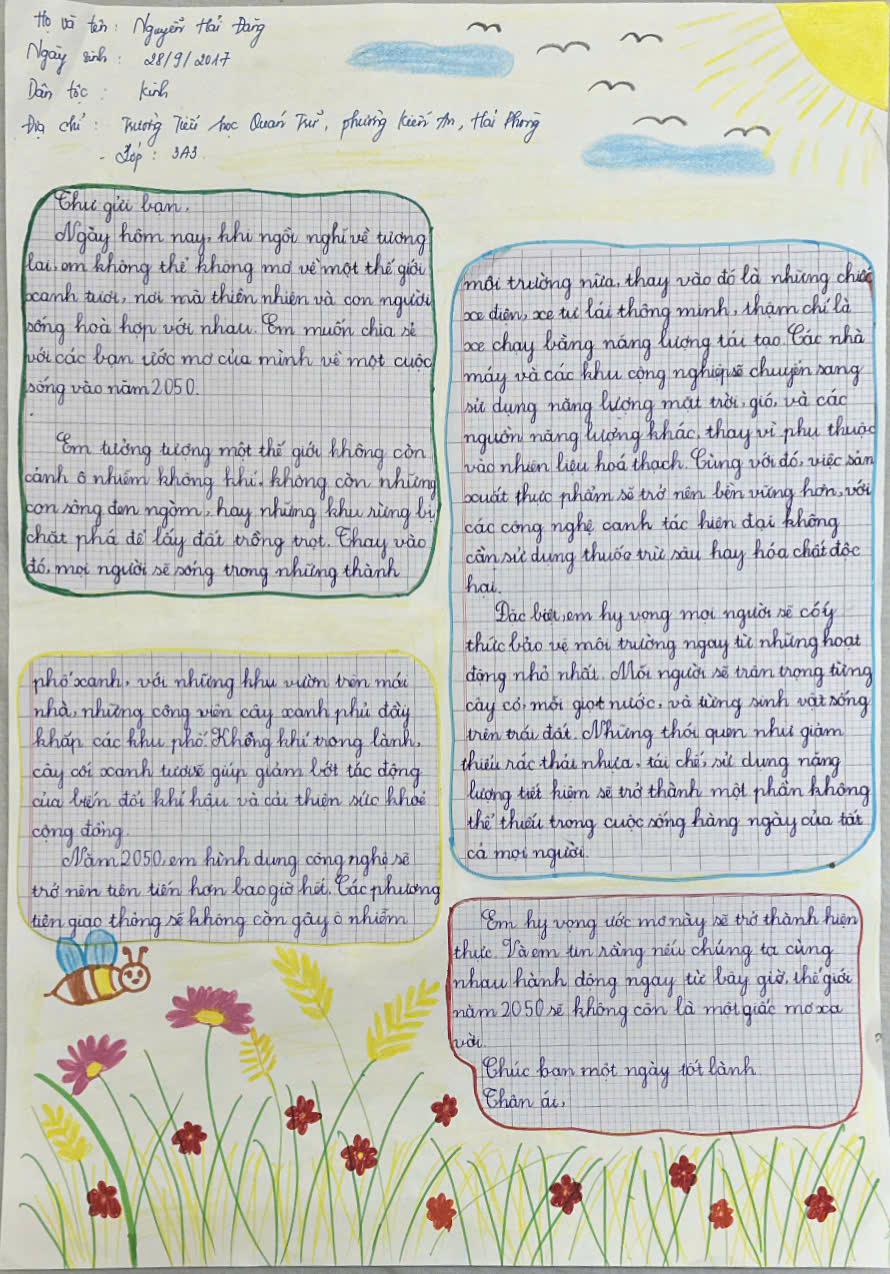 Họ và tên : Nguyễn Hải Đăng
Ngày sinh : 28/9/2017
Dân tộc : Kinh
Địa chỉ : Trường Tiểu học Quán Trữ, phường Kiến An, Hải Phòng
- Lớp : 3A3
Thư gửi bạn,
Ngày hôm nay, khi ngồi nghĩ về tương
lai, em không thể không mơ về một thế giới
xanh tươi, nơi mà thiên nhiên và con người
sống hoà hợp với nhau. Em muốn chia sẻ
với các bạn ước mơ của mình về một cuộc
sống vào năm 2050.
Em tưởng tượng một thế giới không còn
cảnh ô nhiễm không khí, không còn những
con sông đen ngòm, hay những khu rừng bị
chặt phá để lấy đất trồng trọt. Thay vào
đó, mọi người sẽ sống trong những thành
phố xanh, với những khu vườn trên mái
nhà, những công viên cây xanh phủ đầy
khắp các khu phố. Không khí trong lành,
cây cối xanh tươi sẽ giúp giảm bớt tác động
của biến đổi khí hậu và cải thiện sức khoẻ
cộng đồng.
Năm 2050, em hình dung công nghệ sẽ
trở nên tiên tiến hơn bao giờ hết. Các phương
tiện giao thông sẽ không còn gây ô nhiễm
môi trường nữa, thay vào đó là những chiếc
xe điện, xe tự lái thông minh, thậm chí là
xe chạy bằng năng lượng tái tạo. Các nhà
máy và các khu công nghiệp sẽ chuyển sang
sử dụng năng lượng mặt trời, gió, và các
nguồn năng lượng khác, thay vì phụ thuộc
vào nhiên liệu hoá thạch. Cùng với đó, việc sản
xuất thực phẩm sẽ trở nên bền vững hơn, với
các công nghệ canh tác hiện đại không
cần sử dụng thuốc trừ sâu hay hóa chất độc
hại.
Đặc biệt, em hy vọng mọi người sẽ có ý
thức bảo vệ môi trường ngay từ những hoạt
động nhỏ nhất. Mỗi người sẽ trân trọng từng
cây cỏ, mỗi giọt nước, và từng sinh vật sống
trên trái đất. Những thói quen như giảm
thiểu rác thải nhựa, tái chế, sử dụng năng
lượng tiết kiệm sẽ trở thành một phần không
thể thiếu trong cuộc sống hàng ngày của tất
cả mọi người.
Em hy vọng ước mơ này sẽ trở thành hiện
thực. Và em tin rằng nếu chúng ta cùng
nhau hành động ngay từ bây giờ, thế giới
năm 2050 sẽ không còn là một giấc mơ xa
vời.
Chúc bạn một ngày tốt lành.
Thân ái,